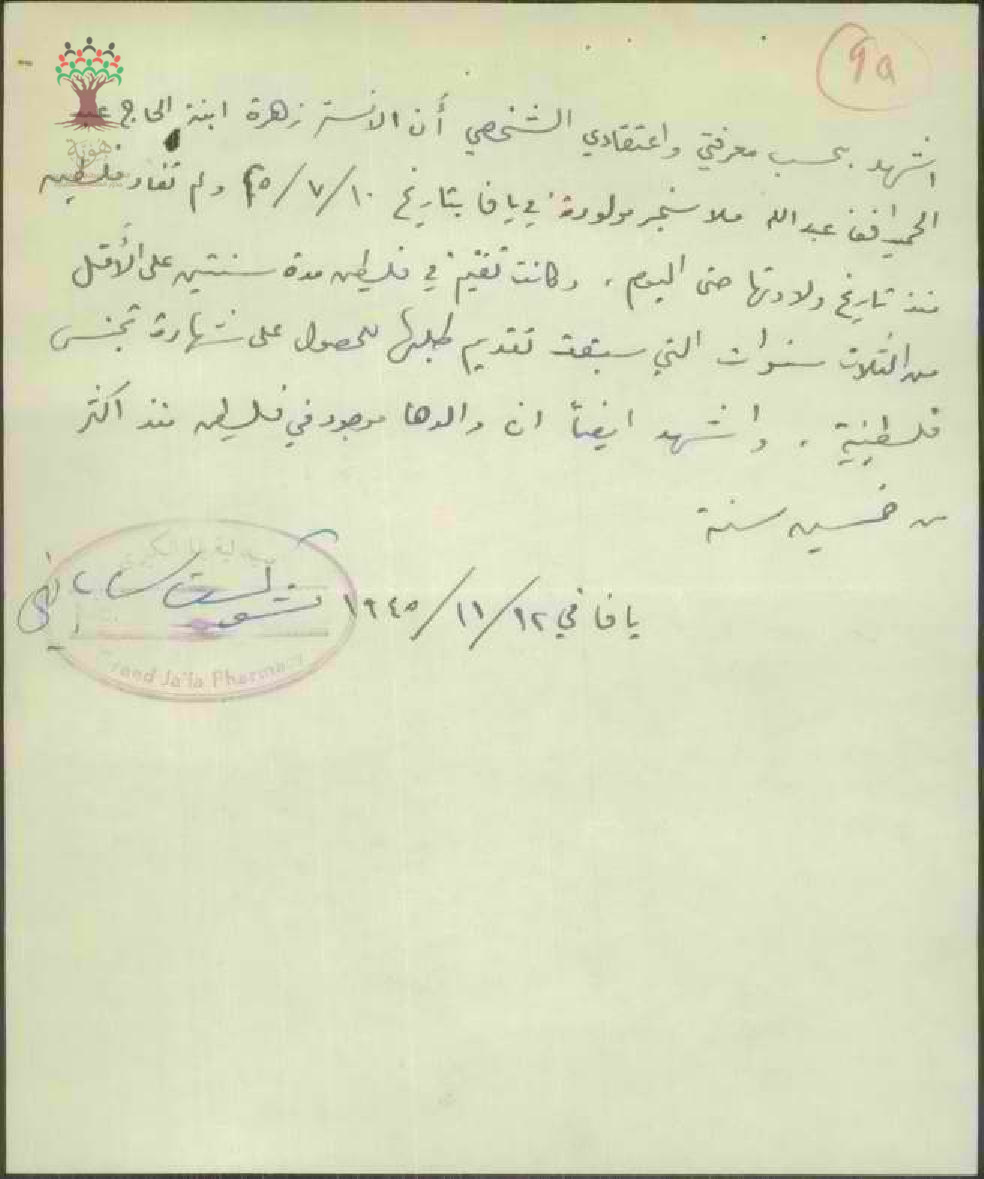 9a
هوية
اشهد بحسب معرفتي واعتقادي الشخصي أن الآنسة زهرة ابنة الحاج عبد
الحميد افغا عبد الله ملا سنجر مولودة في يافا بتاريخ ١٠/٧/٢٥ ولم تغادر فلسطين
منذ تاريخ ولادتها حتى اليوم، وكانت تقيم في فلسطين مدة سنتين على الأقل
من الثلاث سنوات التي سبقت تقديم طلبها للحصول على شهادة تجنس
فلسطينية. واشهد ايضاً ان والدها موجود في فلسطين منذ اكثر
من خمسين سنة
يافا في ١٢/١١/١٩٤٥
Grand Jaffa Pharmacy